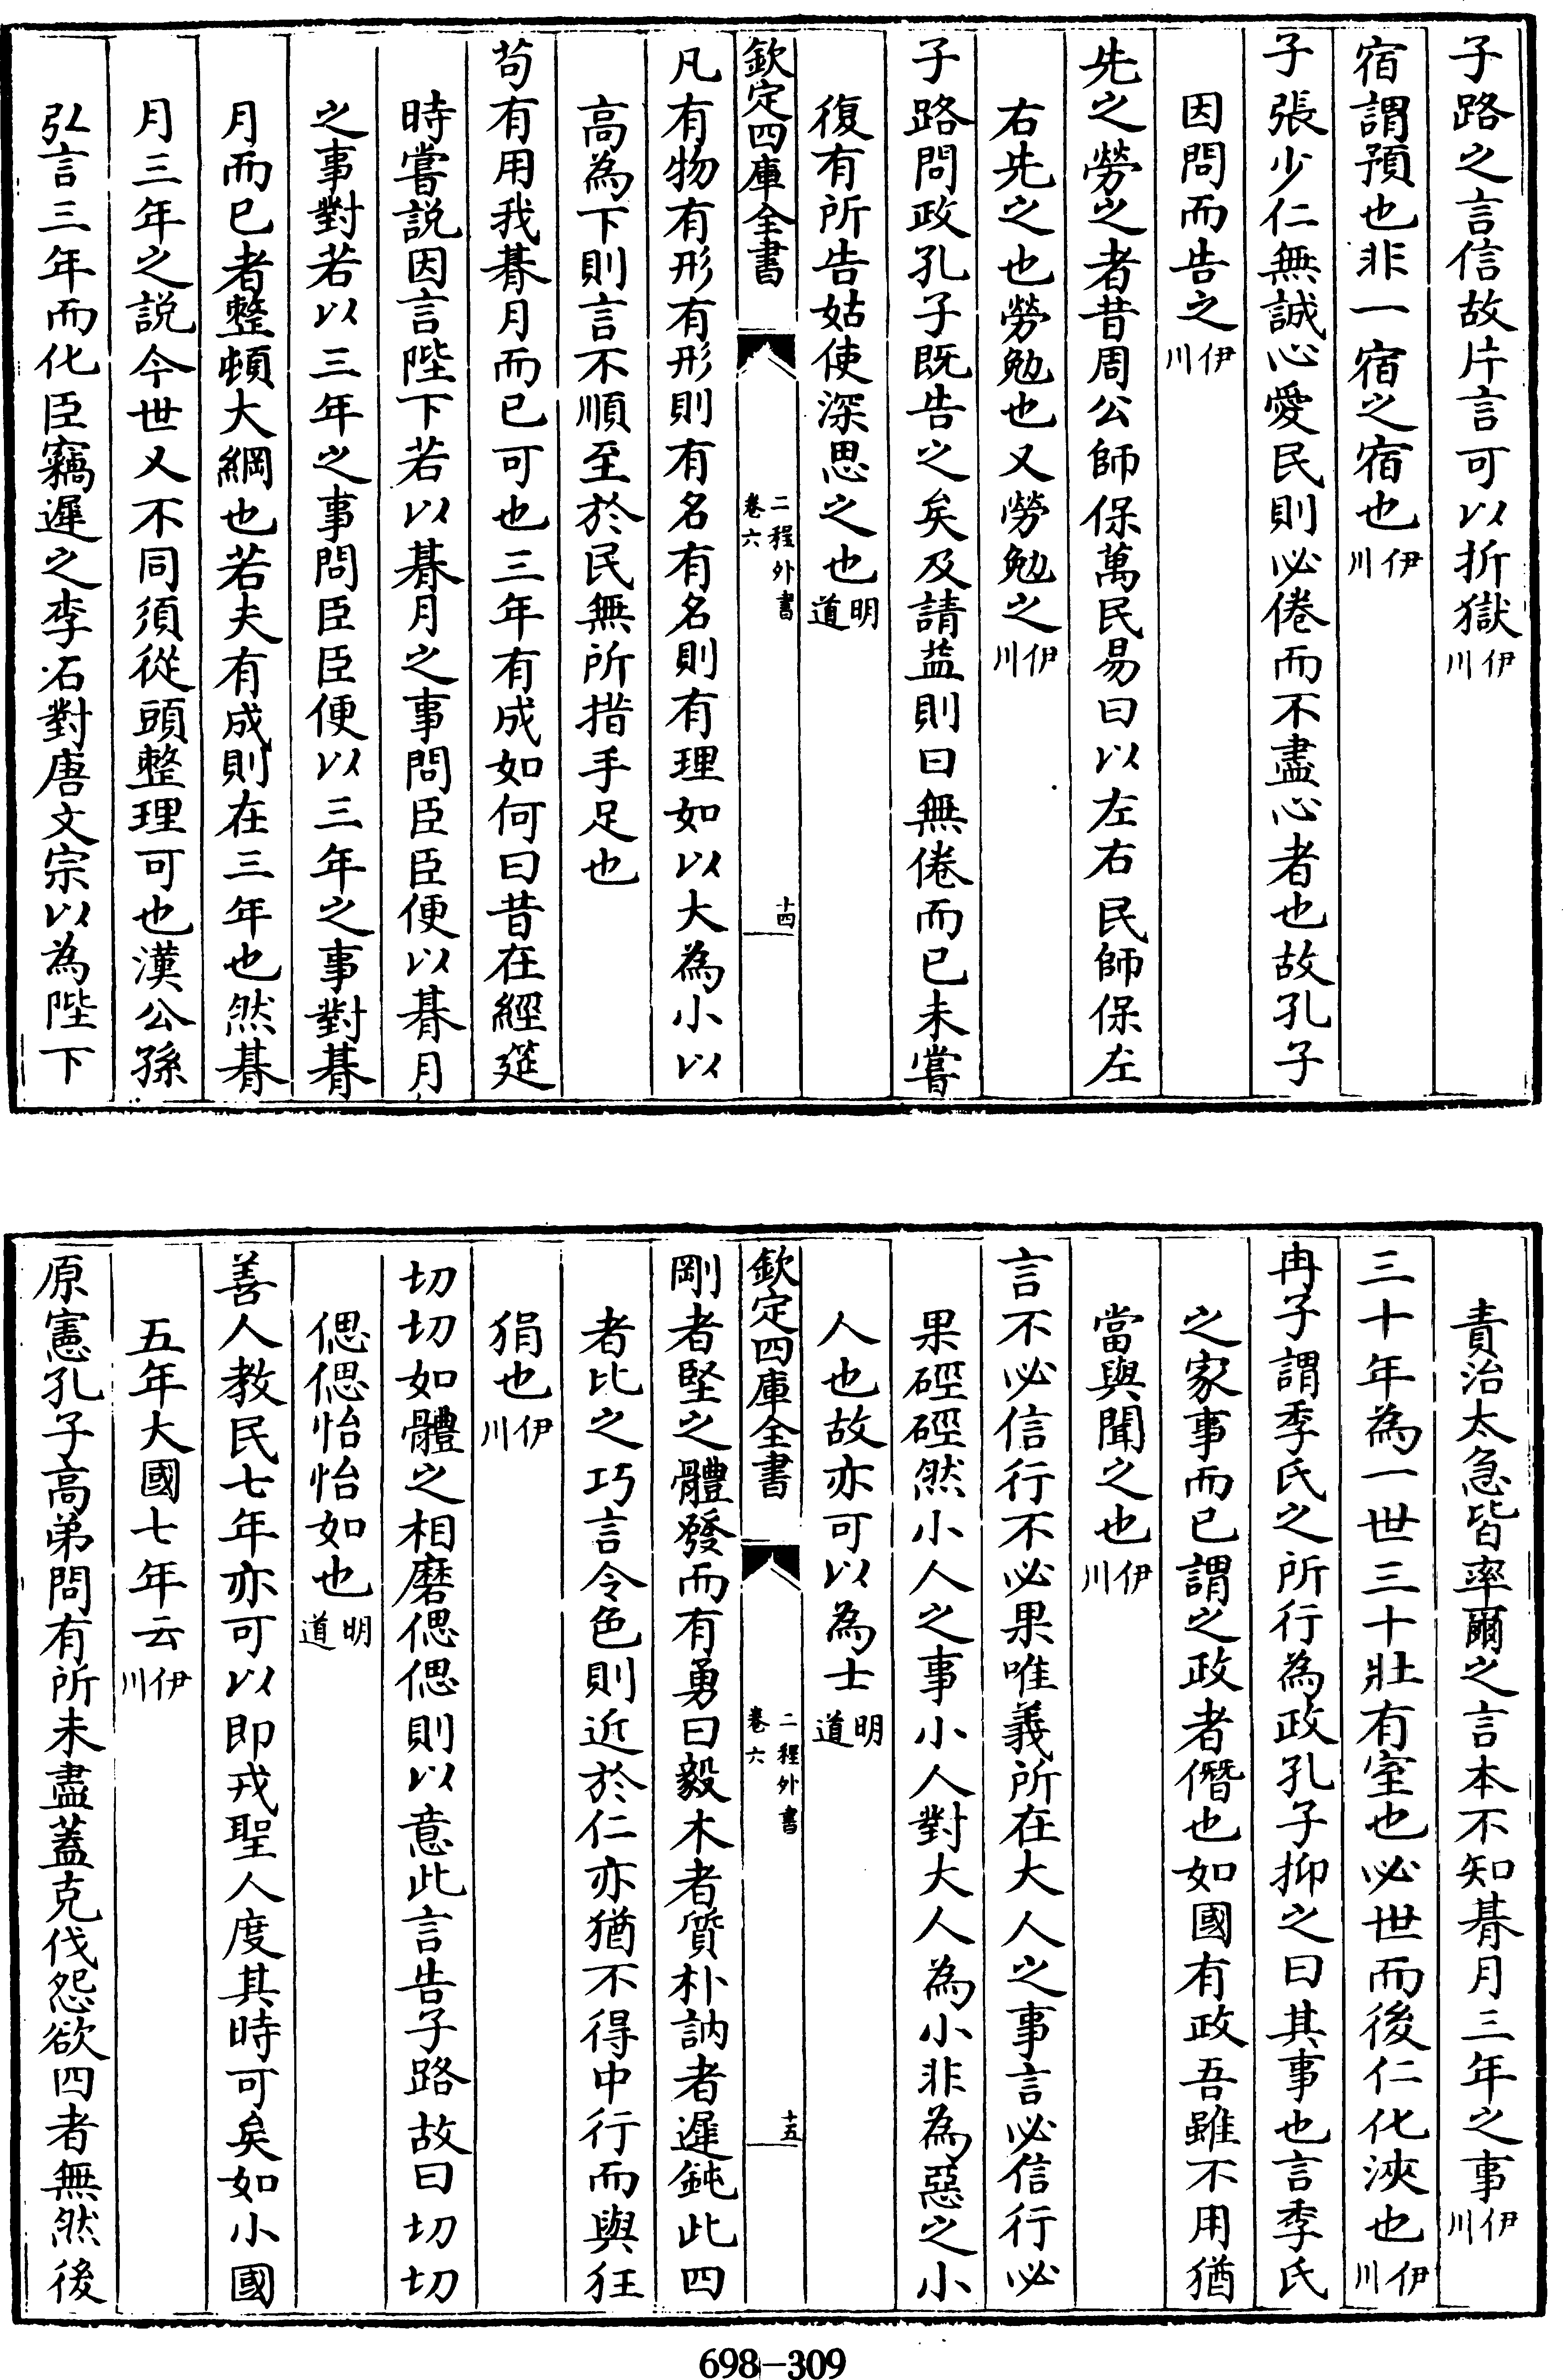 子路之言信故片言可以折獄伊川
宿謂預也非一宿之宿也伊川
子張少仁無誠心愛民則必倦而不盡心者也故孔子
因問而告之伊川
先之勞之者昔周公師保萬民易曰以左右民師保左
右先之也勞勉也又勞勉之伊川
子路問政孔子既告之矣及請益則曰無倦而已未嘗
復有所告姑使深思之也明道
欽定四庫全書
二程外書
卷六
十四
凡有物有形有形則有名有名則有理如以大為小以
高為下則言不順至於民無所措手足也
苟有用我朞月而已可也三年有成如何曰昔在經筵
時嘗説因言陛下若以朞月之事問臣臣便以朞月
之事對若以三年之事問臣臣便以三年之事對朞
月而已者整頓大綱也若夫有成則在三年也然朞
月三年之説今世又不同須從頭整理可也漢公孫
弘言三年而化臣竊遲之李石對唐文宗以為陛下
責治太急皆率爾之言本不知朞月三年之事伊川
三十年為一世三十壯有室也必世而後仁化浹也伊川
冉子謂季氏之所行為政孔子抑之曰其事也言季氏
之家事而已謂之政者僭也如國有政吾雖不用猶
當與聞之也伊川
言不必信行不必果唯義所在大人之事言必信行必
果硜硜然小人之事小人對大人為小非為惡之小
人也故亦可以為士明道
欽定四庫全書
二程外書
卷六
十五
剛者堅之體發而有勇曰毅木者質朴訥者遲鈍此四
者比之巧言令色則近於仁亦猶不得中行而與狂
狷也伊川
切切如體之相磨偲偲則以意此言告子路故曰切切
偲偲怡怡如也明道
善人教民七年亦可以即戎聖人度其時可矣如小國
五年大國七年云伊川
原憲孔子高弟問有所未盡蓋克伐怨欲四者無然後
698-309